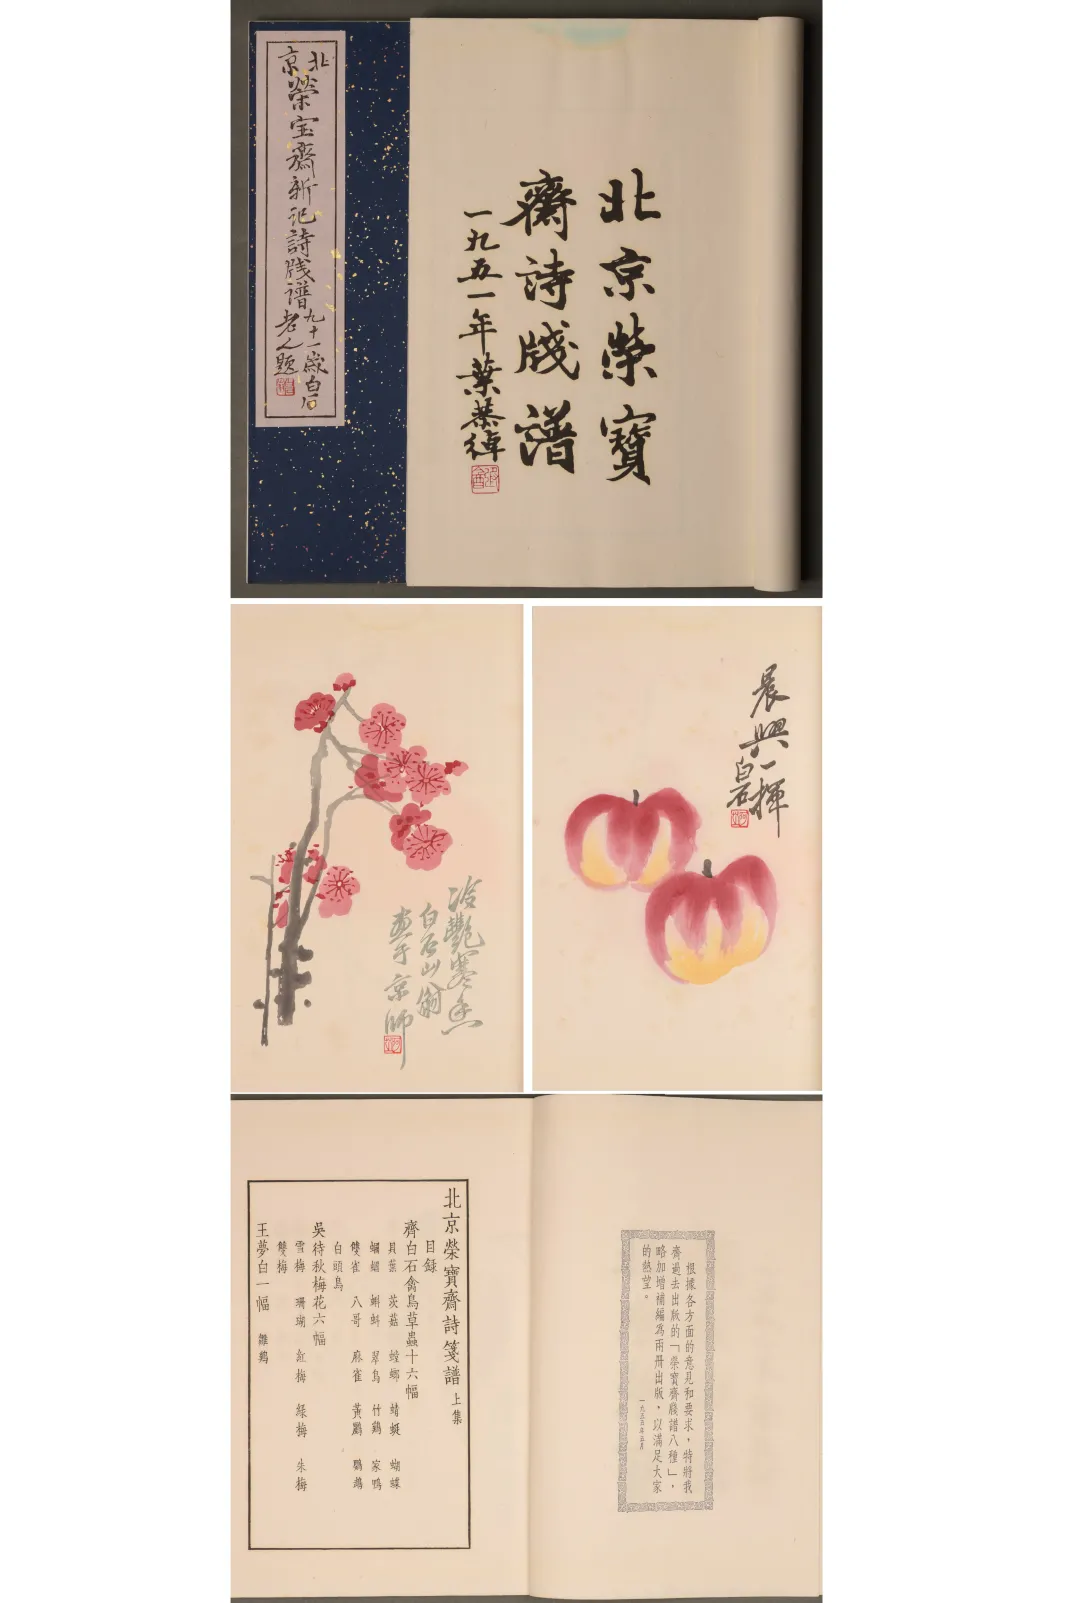 北京榮宝齋新记詩牋譜
九十一歲白石
老人題
北京榮寶
齋詩牋譜
一九五一年葉恭綽
冷艷寒香
白石山翁
畫于京師
晨興一揮
白石
北京榮寶齋詩箋譜 上集
目錄
齊白石禽鳥草蟲十六幅
貝葉 茨菇 螳螂 蜻蜓 蝴蝶
蟈蟈 蝌蚪 翠鳥 竹鷄 家鴨
雙雀 八哥 麻雀 黃鸝 鸚鵡
白頭鳥
吳待秋梅花六幅
雪梅 珊瑚 紅梅 綠梅 朱梅
雙梅
王夢白一幅 雛鷄
根據各方面的意見和要求，特將我
齋過去出版的「榮寶齋牋譜八種」，
略加增補編為兩冊出版，以滿足大家
的熱望。
一九五五年五月